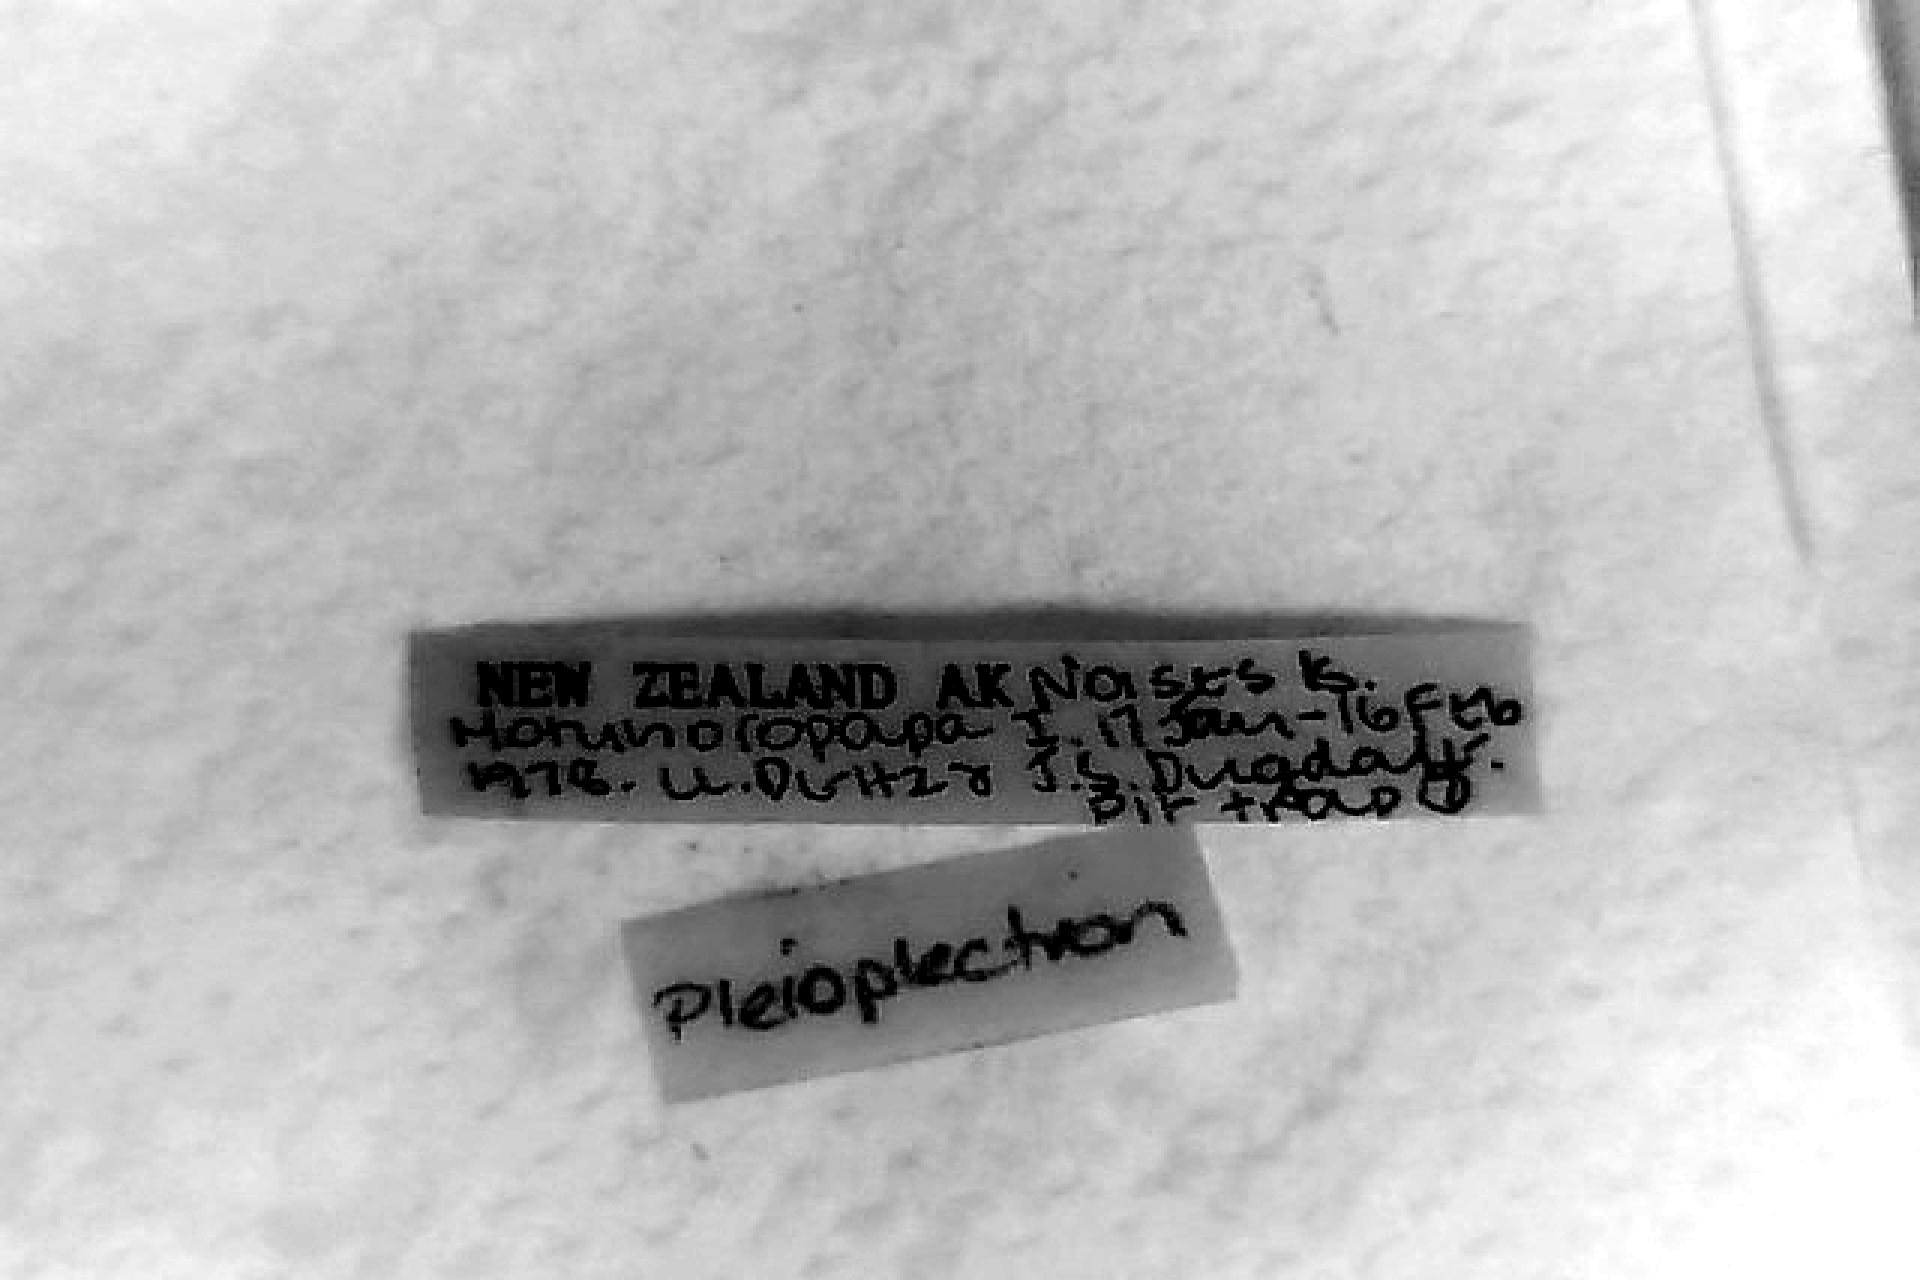 NEW ZEALAND AK Noises Is.
Motuhoropapa I. 17 Jan-16 Feb
1978. J.S. Dugdale.
Pit trap
Pleioplectron